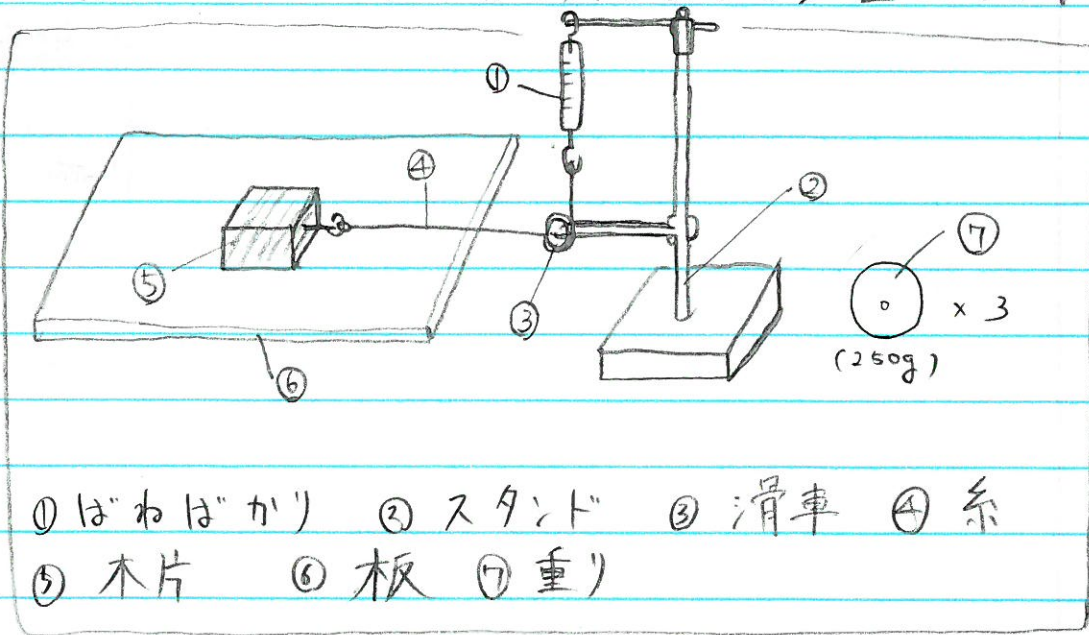 ①
④
②
⑦
⑤
③
× 3
(250g)
⑥
① ばねばかり ② スタンド ③ 滑車 ④ 糸
⑤ 木片 ⑥ 板 ⑦ 重り